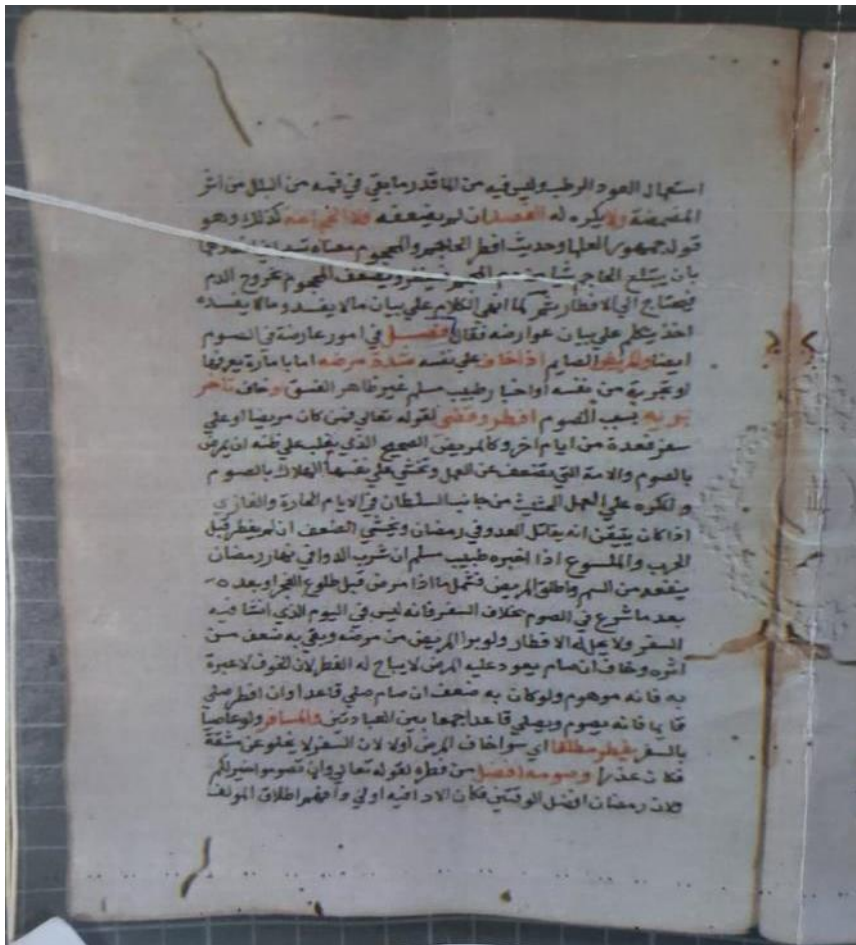 استعمال العود الرطب وليس فيه من الما قدر ما يبقي في فمه من البلل من اثر
المضمضة ولا يكره له الفصد ان لم يضعفه ولا الحجامة كذلك وهو
قول جمهور العلما وحديث افطر الحاجم والمحجوم معناه
بان يبتلع الحاجم شيا من دم المحجوم فيفطر ويضعف المحجوم بخروج الدم
فيحتاج الي الافطار ثم لما انهي الكلام علي بيان ما لا يفسد وما لا يفسده
اخذ يتكلم علي بيان عوارضه فقال فصل في امور عارضة في الصوم
ايضا والمريض الصايم اذا خاف علي نفسه شدة مرضه اما بامارة يعرفها
او تجربة من نفسه او اخبار طبيب مسلم غير ظاهر الفسق او خاف تاخر
برئه بسبب الصوم افطر وقضي لقوله تعالي فمن كان مريضا او علي
سفر فعدة من ايام اخر وكالمريض الصحيح الذي يغلب علي ظنه ان يمرض
بالصوم والامة التي تضعف عن العمل وتخشي علي نفسها الهلاك بالصوم
والمكره علي العمل الحثيث من جانب السلطان في الايام الحارة والغازي
اذا كان يتيقن انه يقاتل العدو في رمضان ويخشي الضعف ان لم يفطر قبل
الحرب والملسوع اذا اخبره طبيب مسلم ان شرب الدوا في نهار رمضان
ينفعه من السم واطلق المريض فشمل ما اذا مرض قبل طلوع الفجر او بعده
بعد ما شرع في الصوم بخلاف السفر فانه ليس في اليوم الذي انشا فيه
السفر ولا يحل له الافطار ولو برا المريض من مرضه وبقي به ضعف من
اثره وخاف ان صام يعود عليه المرض لا يباح له الفطر لان الخوف لا عبرة
به فانه موهوم ولو كان به ضعف ان صام صلي قاعدا وان افطر صلي
قايما فانه يصوم ويصلي قاعدا جمعا بين العبادتين والمسافر ولو عاصيا
بالسفر يفطر مطلقا اي سوا خاف المرض او لا لان السفر لا يخلو عن مشقة
فكان عذرا وصومه افضل من فطره لقوله تعالي وان تصوموا خير لكم
ولان رمضان افضل الوقتين فكان الادا فيه اولي اطلاق المولف